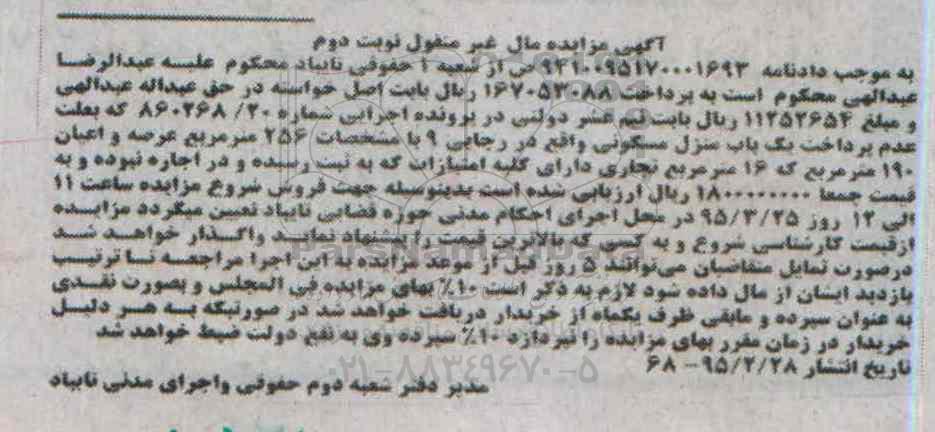 آگهی مزایده مال غیر منقول نوبت دوم
به موجب دادنامه ۹۴۱۰۰۹۵۱۷۰۰۰۱۶۹۳ ص از شعبه ۱ حقوقی تایباد محکوم علیه عبدالرضا
عبدالهی محکوم است به پرداخت ۱۶۷۰۵۳۰۸۸ ریال بابت اصل خواسته در حق عبداله عبدالهی
و مبلغ ۱۱۲۵۲۶۵۴ ریال بابت نیم عشر دولتی در پرونده اجرایی شماره ۲۰/ ۸۶۰۲۶۸ که بعلت
عدم پرداخت یک باب منزل مسکونی واقع در رجایی ۹ با مشخصات ۲۵۶ مترمربع عرصه و اعیان
۱۹۰ مترمربع که ۱۶ مترمربع تجاری دارای کلیه امتیازات که به ثبت رسیده و در اجاره نبوده و به
قیمت جمعا ۱۸۰۰۰۰۰۰۰۰ ریال ارزیابی شده است بدینوسیله جهت فروش شروع مزایده ساعت ۱۱
الی ۱۲ روز ۹۵/۳/۲۵ در محل اجرای احکام مدنی حوزه قضایی تایباد تعیین میگردد مزایده
ازقیمت کارشناسی شروع و به کسی که بالاترین قیمت را پیشنهاد نماید واگذار خواهد شد
درصورت تمایل متقاضیان می‌توانند ۵ روز قبل از موعد مزایده به این اجرا مراجعه تا ترتیب
بازدید ایشان از مال داده شود لازم به ذکر است ۱۰٪ بهای مزایده فی المجلس و بصورت نقدی
به عنوان سپرده و مابقی ظرف یکماه از خریدار دریافت خواهد شد در صورتیکه به هر دلیل
خریدار در زمان مقرر بهای مزایده را نپردازد ۱۰٪ سپرده وی به نفع دولت ضبط خواهد شد
تاریخ انتشار ۹۵/۲/۲۸ – ۶۸
۰۲۱-۸۸۳۴۹۶۷۰-۵
مدیر دفتر شعبه دوم حقوقی واجرای مدنی تایباد